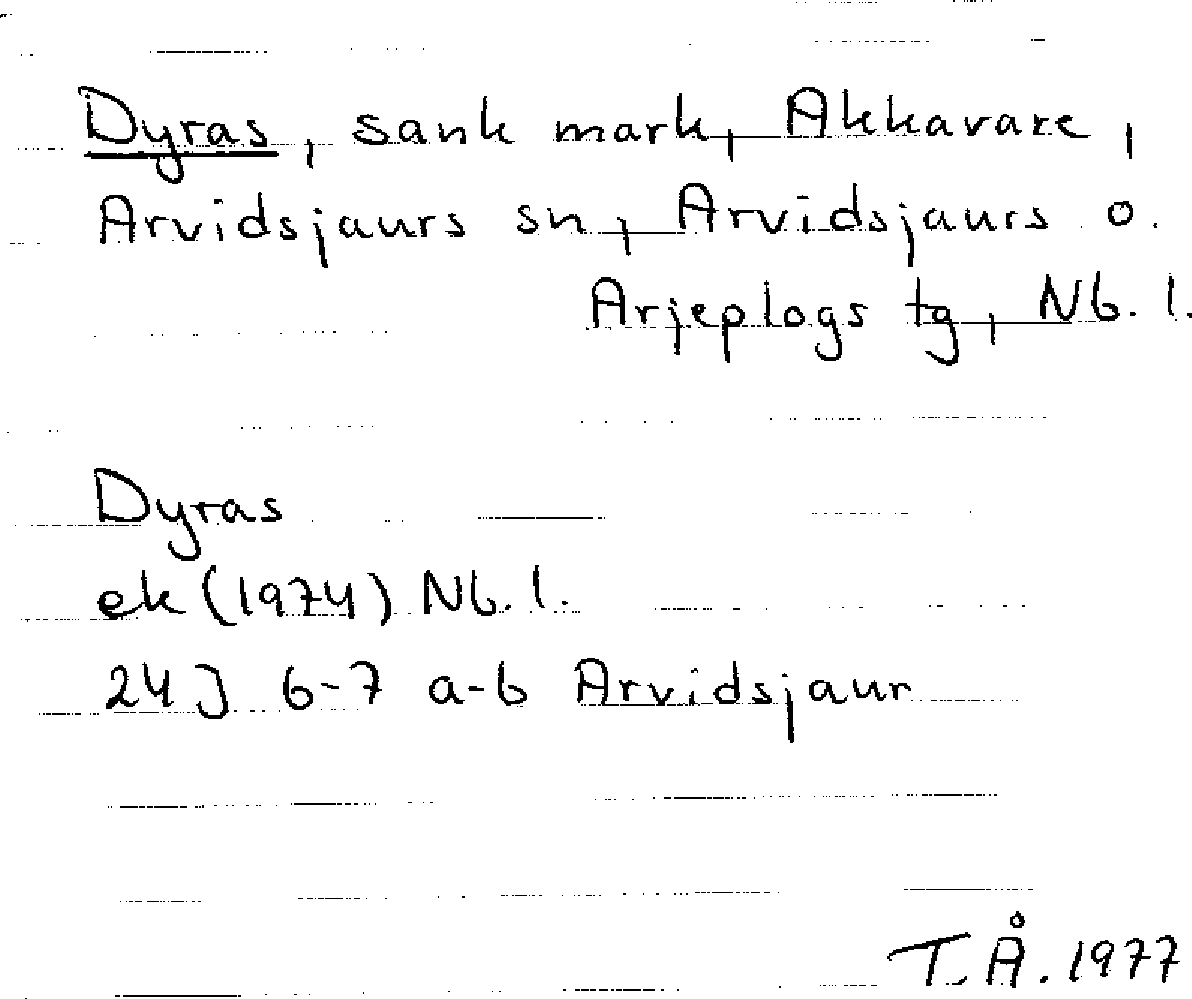 Dyras, sank mark, Akkavare,
Arvidsjaurs sn, Arvidsjaurs o.
Arjeplogs tg, Nb. l.
Dyras
ek (1974) Nb. l.
24J 6-7 a-b Arvidsjaur
T.Å. 1977